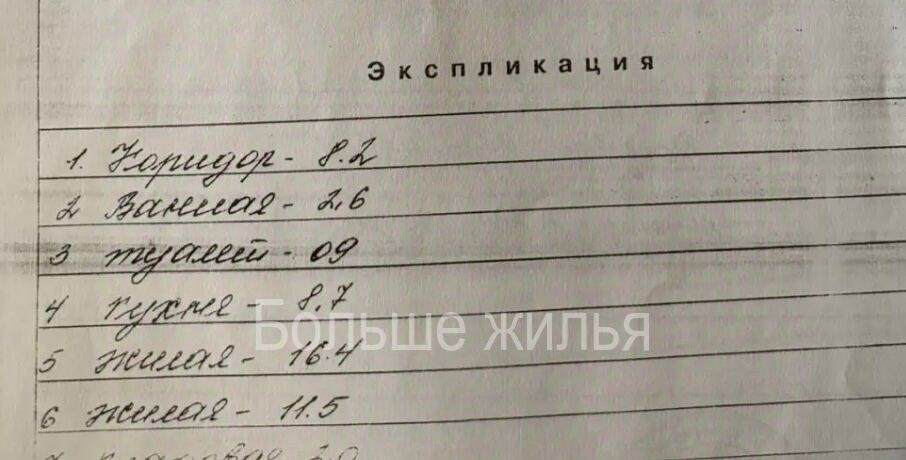 Экспликация
1. Коридор - 8.2
2 Ванная - 2,6
3 туалет - 09
4 кухня - 8,7
Больше жилья
5 жилая - 16.4
6 жилая - 11.5